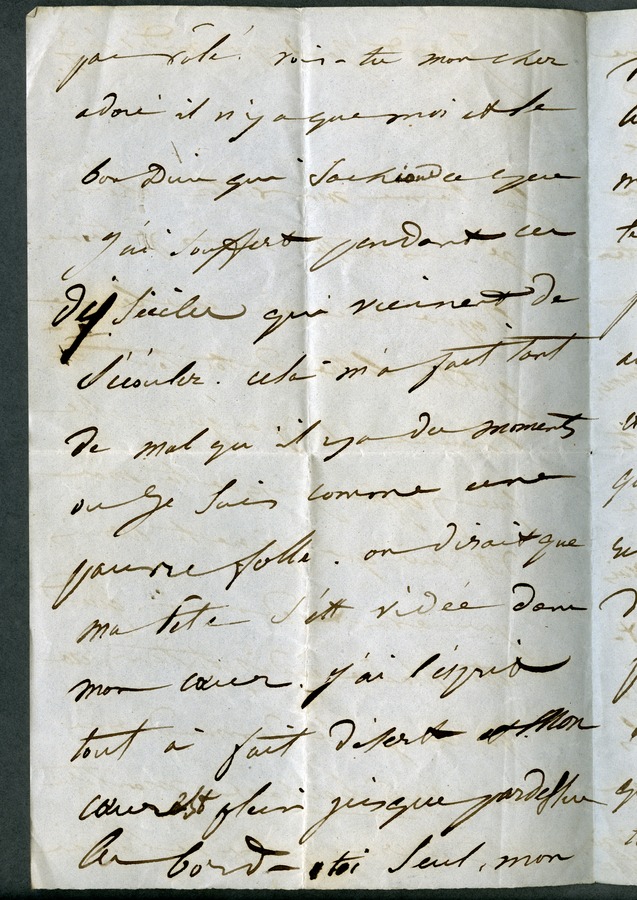 vois-tu mon cher
adoré il n'y a que moi et le
bon Dieu qui sache ce que
J'ai souffert pendant ces
dix siècles qui viennent de
s'écouler. cela m'a fait tant
de mal qu'il y a des moments
ou Je suis comme une
pauvre folle. on dirait que
ma tête s'est vidée dans
mon cœur. J'ai l'esprit
tout à fait désert et Mon
cœur est plein jusque pardessus
les bords toi Seul, mon